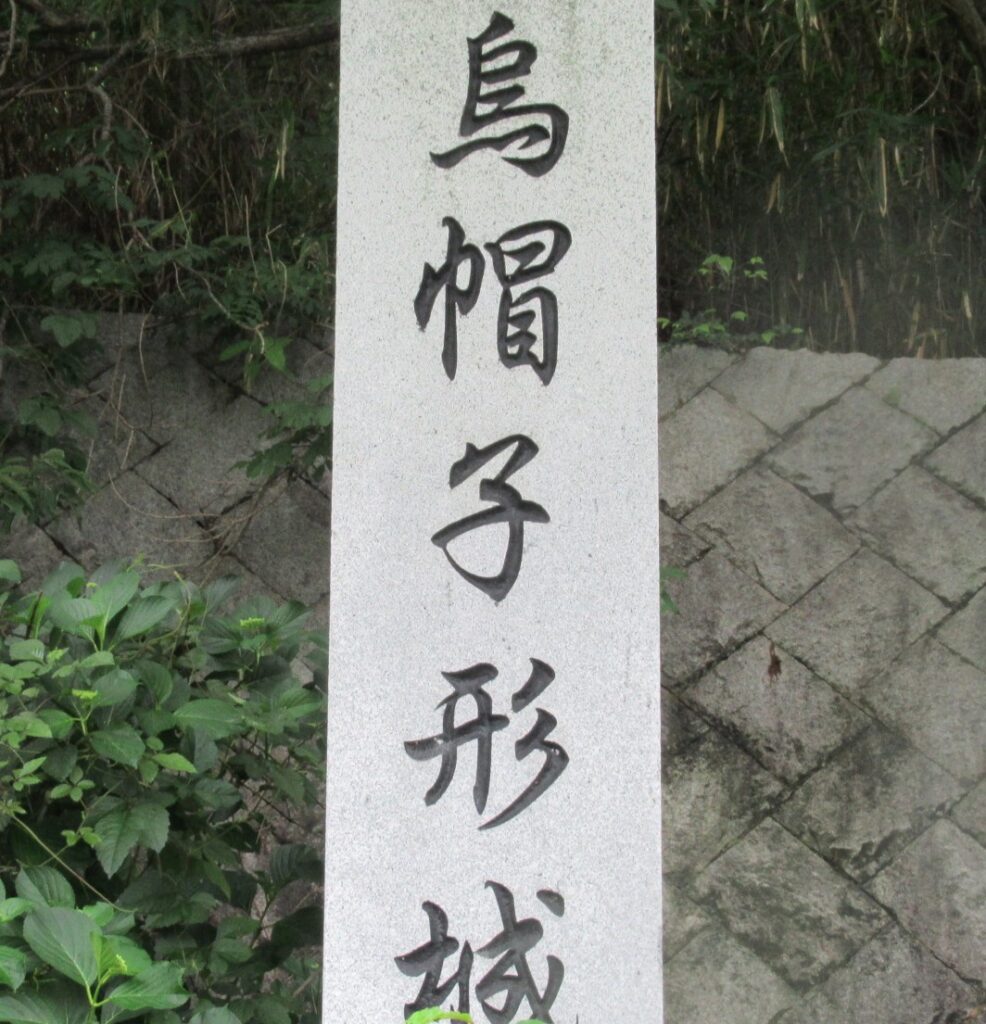 烏帽子形城